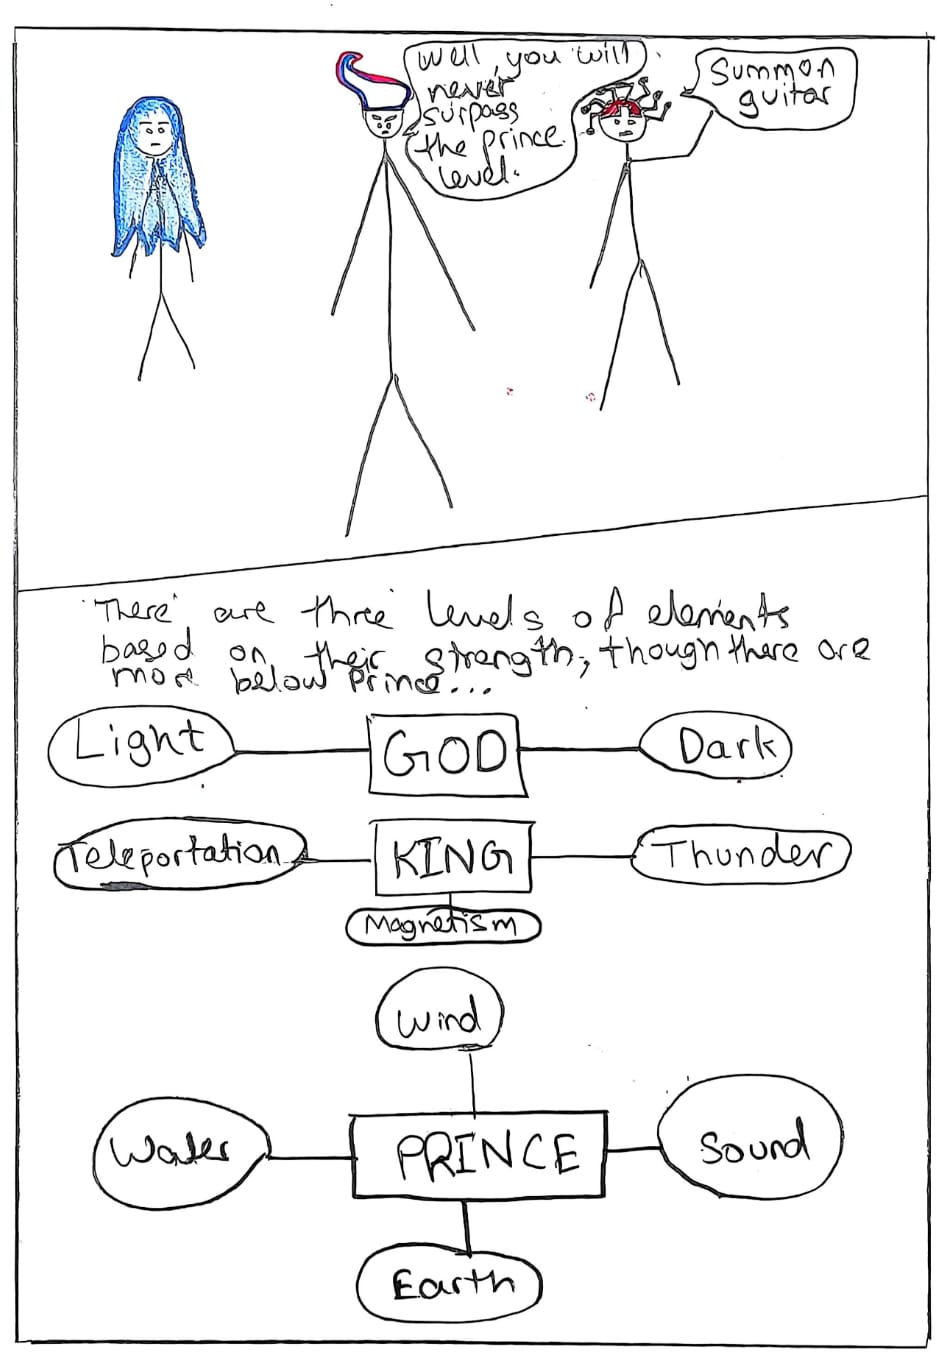 Well, you will
never
surpass
the prince
level.
Summon
guitar
There are three levels of elements
based on their strength, though there are
more below Prince...
Light
GOD
Dark
Teleportation
KING
Thunder
Magnetism
Wind
Water
PRINCE
Sound
Earth